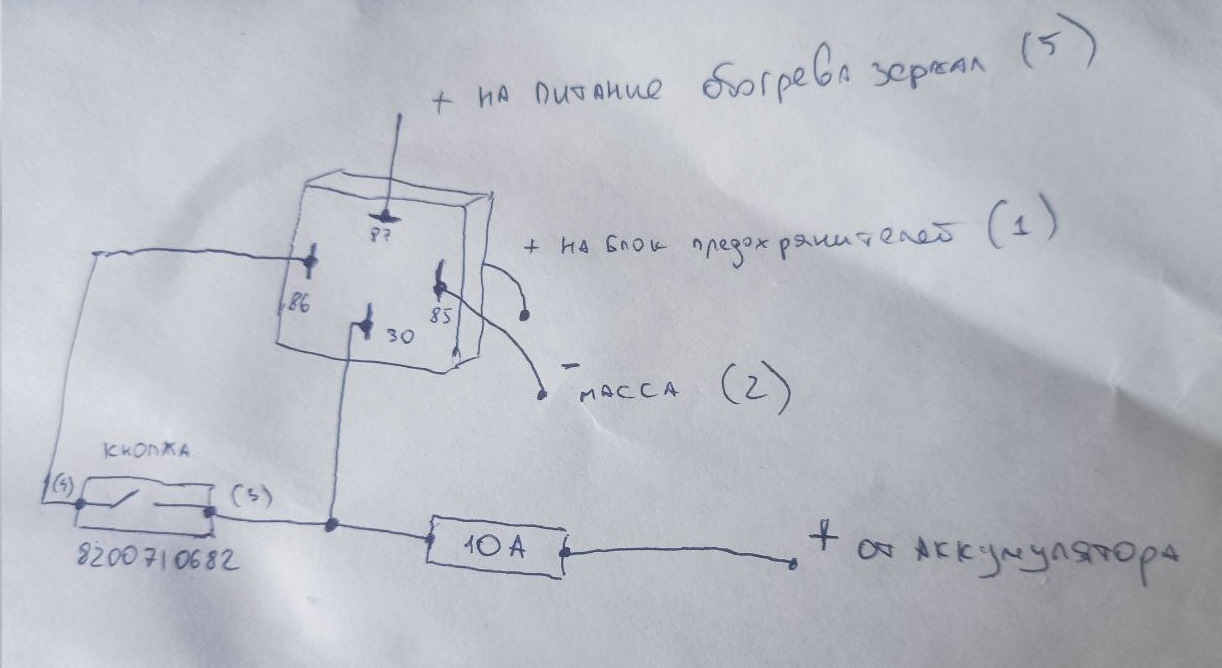 + НА ПИТАНИЕ обогрева зеркал (5)
87
+ НА БЛОК предохранителей (1)
86
85
30
- МАССА (2)
КНОПКА
(4)
(3)
10 А
+ от АККУМУЛЯТОРА
8200710682